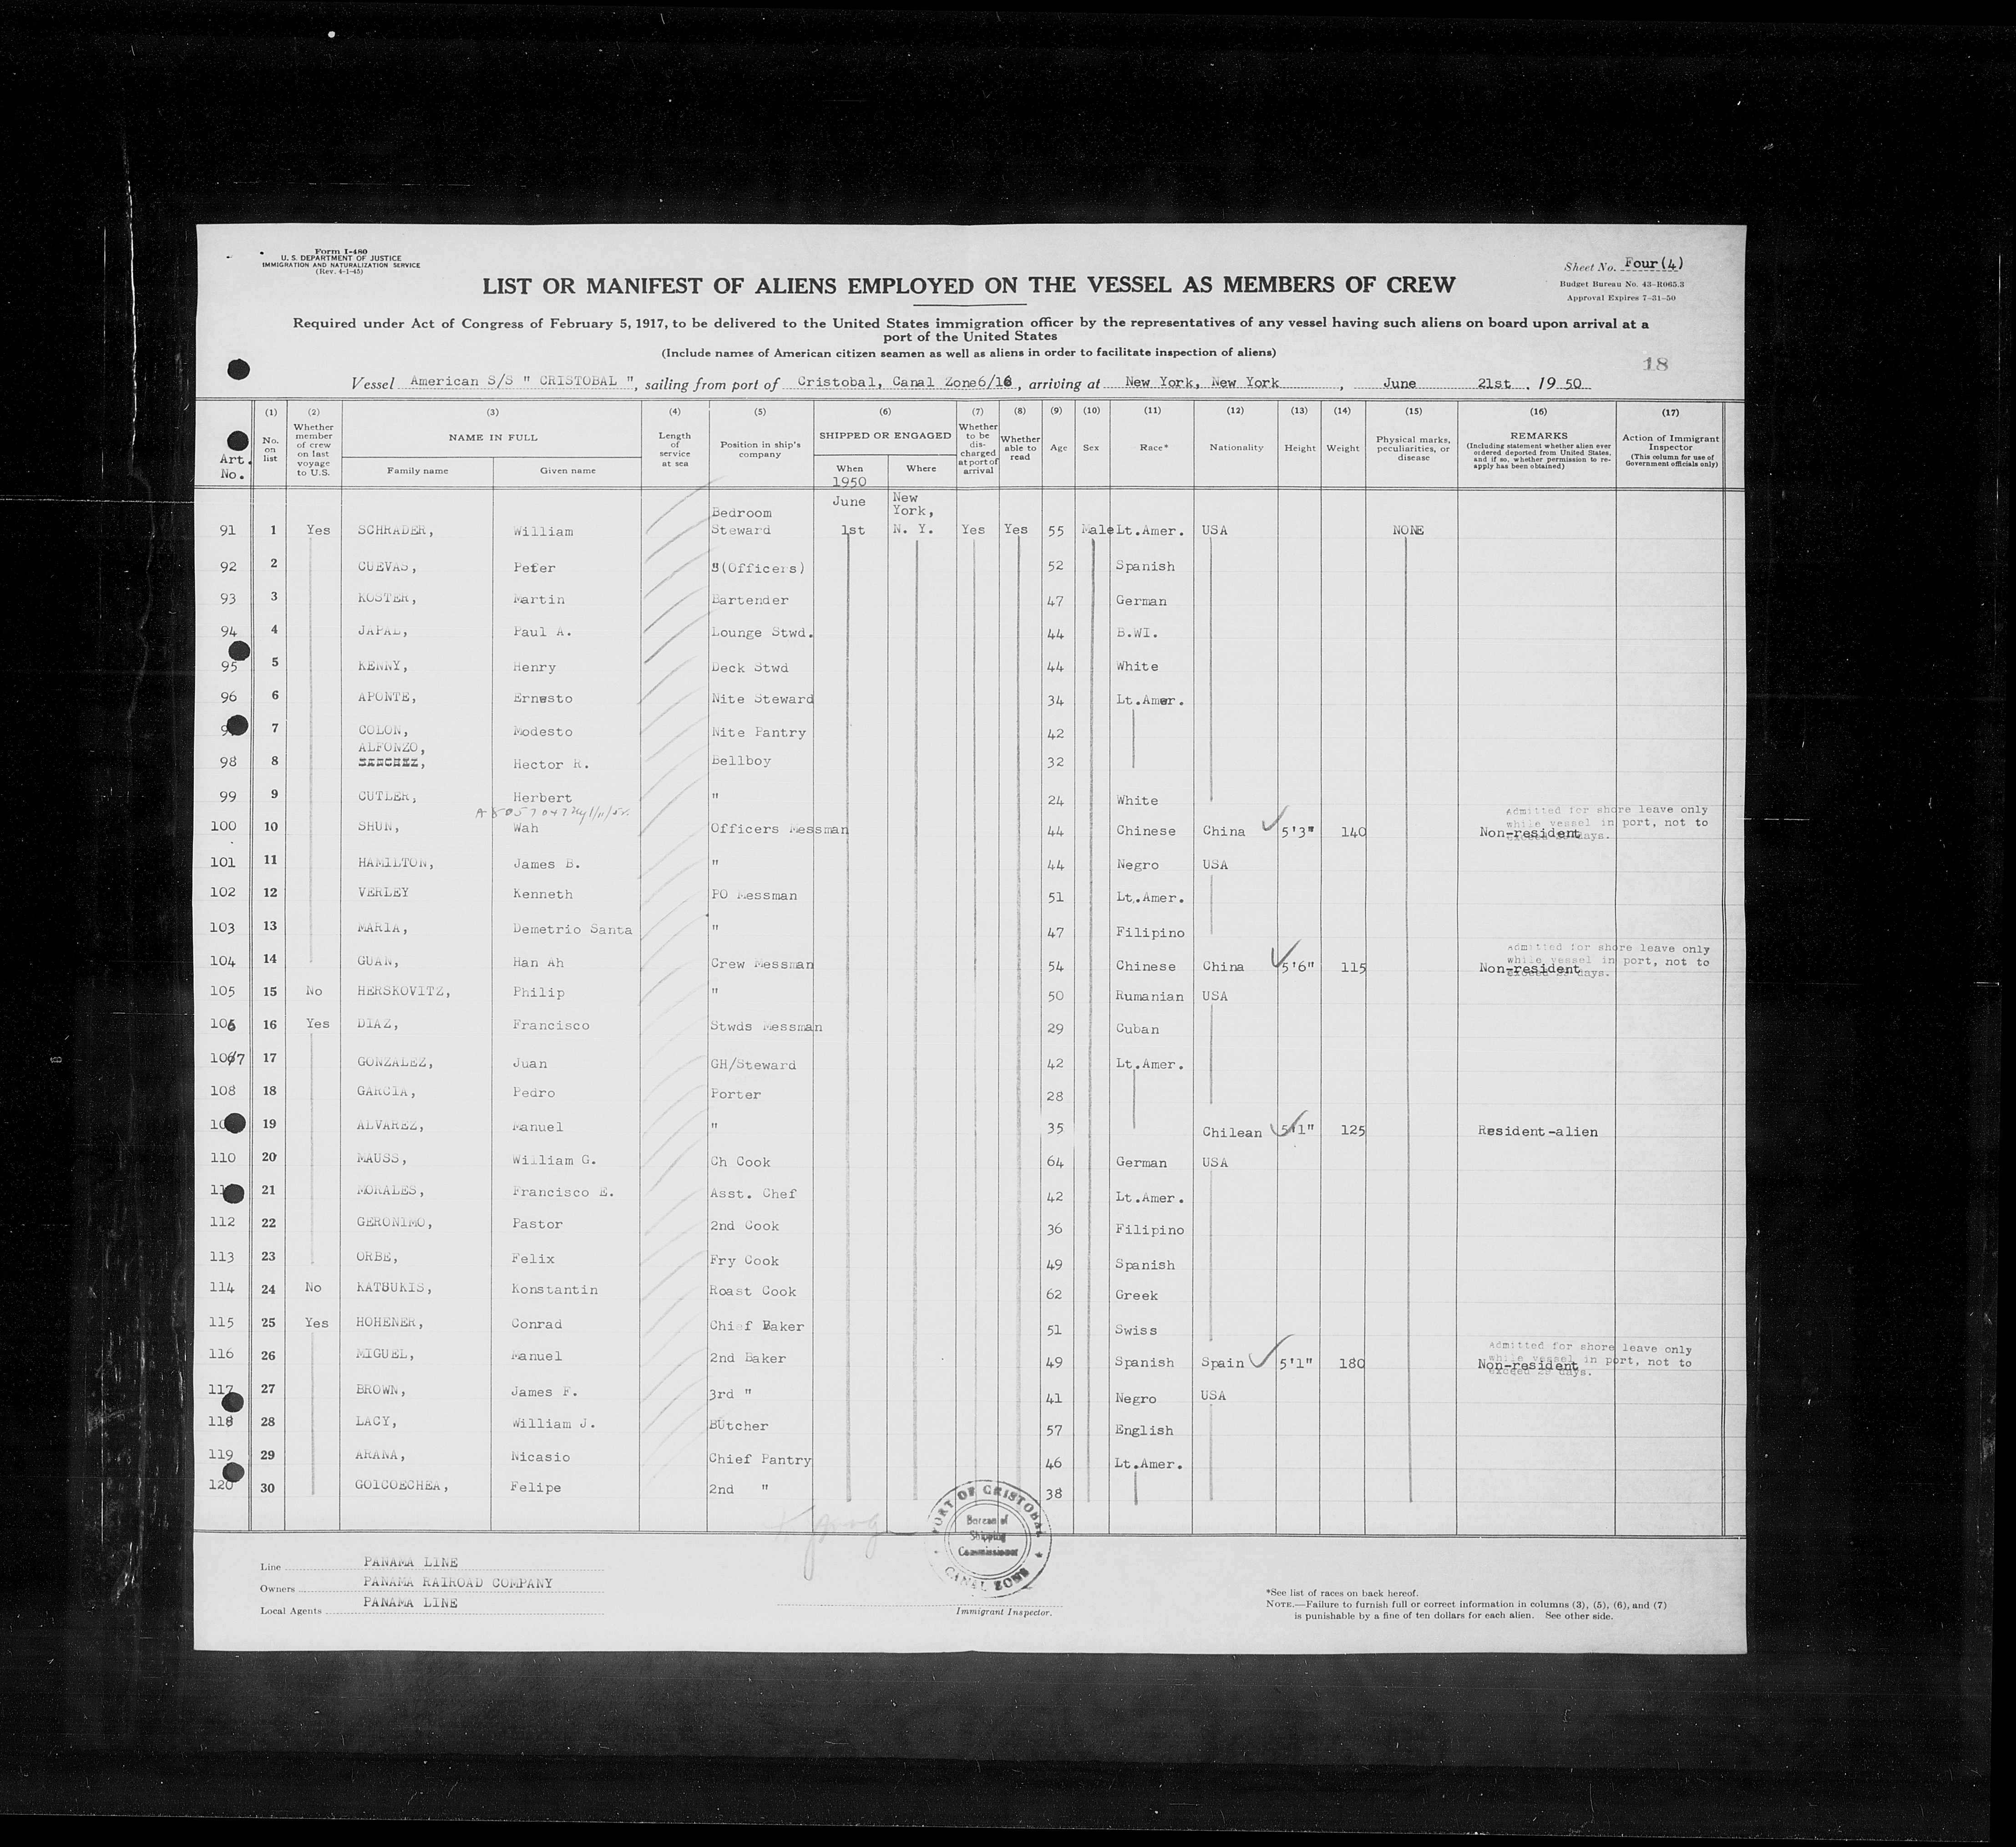 Form I-480
U. S. DEPARTMENT OF JUSTICE
IMMIGRATION AND NATURALIZATION SERVICE
(Rev. 4-1-45)
Sheet No. Four(4)
Budget Bureau No. 43-R065.3
Approval Expires 7-31-50
LIST OR MANIFEST OF ALIENS EMPLOYED ON THE VESSEL AS MEMBERS OF CREW
Required under Act of Congress of February 5, 1917, to be delivered to the United States immigration officer by the representatives of any vessel having such aliens on board upon arrival at a
port of the United States
(Include names of American citizen seamen as well as aliens in order to facilitate inspection of aliens)
18
Vessel American S/S " CRISTOBAL ", sailing from port of Cristobal, Canal Zone 6/16, arriving at New York, New York, June 21st, 1950
Art. No. (1) No. on list (2) Whether member of crew on last voyage to U.S. (3) NAME IN FULL Family name Given name (4) Length of service at sea (5) Position in ship's company (6) SHIPPED OR ENGAGED When Where (7) Whether to be discharged at port of arrival (8) Whether able to read (9) Age (10) Sex (11) Race* (12) Nationality (13) Height (14) Weight (15) Physical marks, peculiarities, or disease (16) REMARKS (Including statement whether alien ever ordered deported from United States, and if so, whether permission to re-apply has been obtained) (17) Action of Immigrant Inspector (This column for use of Government officials only)
1950
91 1 Yes SCHRADER, William Bedroom Steward June 1st New York, N. Y. Yes Yes 55 Male Lt.Amer. USA NONE
92 2 CUEVAS, Peter (Officers) 52 Spanish
93 3 KOSTER, Martin Bartender 47 German
94 4 JAPAL, Paul A. Lounge Stwd. 44 B.WI.
95 5 KENNY, Henry Deck Stwd 44 White
96 6 APONTE, Ernesto Nite Steward 34 Lt.Amer.
7 COLON, Modesto Nite Pantry 42
ALFONZO,
98 8 Hector R. Bellboy 32
99 9 CUTLER, Herbert " 24 White
100 10 SHUN, Wah Officers Messman 44 Chinese China 5'3" 140 Non-resident
Admitted for shore leave only
while vessel in port, not to
exceed 29 days.
101 11 HAMILTON, James B. " 44 Negro USA
102 12 VERLEY Kenneth PO Messman 51 Lt.Amer.
103 13 MARIA, Demetrio Santa " 47 Filipino
104 14 GUAN, Han Ah Crew Messman 54 Chinese China 5'6" 115 Non-resident
Admitted for shore leave only
while vessel in port, not to
exceed 29 days.
105 15 No HERSKOVITZ, Philip " 50 Rumanian USA
106 16 Yes DIAZ, Francisco Stwds Messman 29 Cuban
107 17 GONZALEZ, Juan GH/Steward 42 Lt.Amer.
108 18 GARCIA, Pedro Porter 28
19 ALVAREZ, Manuel " 35 Chilean 5'1" 125 Resident-alien
110 20 MAUSS, William G. Ch Cook 64 German USA
21 MORALES, Francisco E. Asst. Chef 42 Lt.Amer.
112 22 GERONIMO, Pastor 2nd Cook 36 Filipino
113 23 ORBE, Felix Fry Cook 49 Spanish
114 24 No KATSUKIS, Konstantin Roast Cook 62 Greek
115 25 Yes HOHENER, Conrad Chief Baker 51 Swiss
116 26 MIGUEL, Manuel 2nd Baker 49 Spanish Spain 5'1" 180 Non-resident
Admitted for shore leave only
while vessel in port, not to
exceed 29 days.
117 27 BROWN, James F. 3rd " 41 Negro USA
118 28 LACY, William J. Butcher 57 English
119 29 ARANA, Nicasio Chief Pantry 46 Lt.Amer.
120 30 GOICOECHEA, Felipe 2nd " 38
PORT OF CRISTOBAL
Bureau of
Shipping
Commissioner
CANAL ZONE
Line PANAMA LINE
Owners PANAMA RAIROAD COMPANY
Local Agents PANAMA LINE
Immigrant Inspector.
*See list of races on back hereof.
NOTE.—Failure to furnish full or correct information in columns (3), (5), (6), and (7)
is punishable by a fine of ten dollars for each alien. See other side.